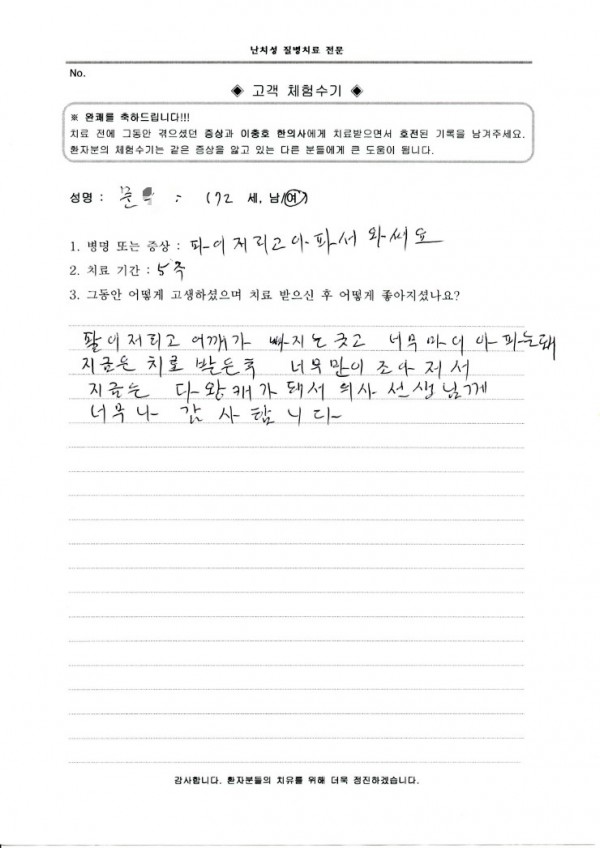 난치성 질병치료 전문
No.
◈ 고객 체험수기 ◈
※ 완쾌를 축하드립니다!!!
치료 전에 그동안 겪으셨던 증상과 이충호 한의사에게 치료받으면서 호전된 기록을 남겨주세요.
환자분의 체험수기는 같은 증상을 앓고 있는 다른 분들에게 큰 도움이 됩니다.
성명 : 문 : (72 세, 남/여)
1. 병명 또는 증상 : 파이저리고아파서 와써요
2. 치료 기간 : 5주
3. 그동안 어떻게 고생하셨으며 치료 받으신 후 어떻게 좋아지셨나요?
팔이저리고 어깨가 빠지는긋고 너무마이아파는돼
지금은 치로 받은후 너무만이 조아저서
지금은 다왕캐가돼서 의사선생님게
너무나 감사합니다
감사합니다. 환자분들의 치유를 위해 더욱 정진하겠습니다.